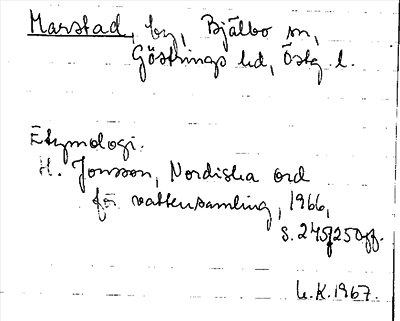 Marstad, by, Bjälbo sn,
Göstrings hd, Östg l.
Etymologi.
H. Jonsson, Nordiska ord
för vattensamling, 1966,
s. 245f 250ff.
U.K. 1967.